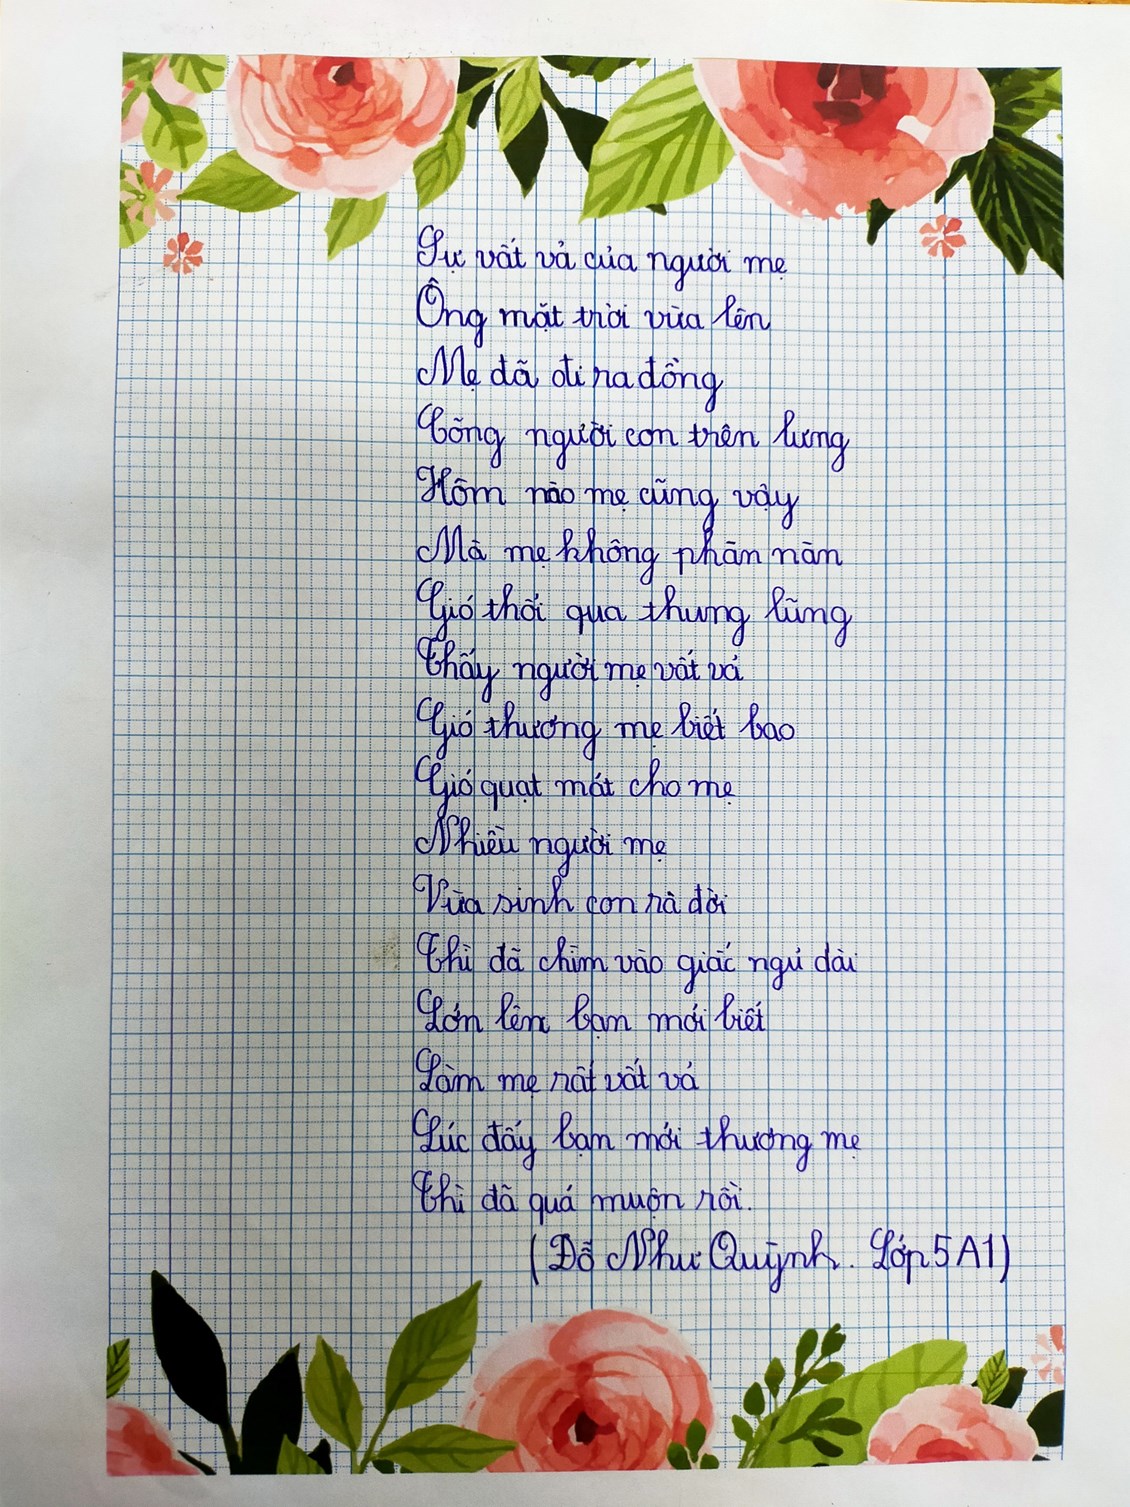 Sự vất vả của người mẹ
Ông mặt trời vừa lên
Mẹ đã đi ra đồng
Cõng người con trên lưng
Hôm nào mẹ cũng vậy
Mà mẹ không phàn nàn
Gió thổi qua thung lũng
Thấy người mẹ vất vả
Gió thương mẹ biết bao
Gió quạt mát cho mẹ
Nhiều người mẹ
Vừa sinh con rà đời
Thì đã chìm vào giấc ngủ dài
Lớn lên bạn mới biết
Làm mẹ rất vất vả
Lúc đấy bạn mới thương mẹ
Thì đã quá muộn rồi.
(Đỗ Như Quỳnh. Lớp 5A1)